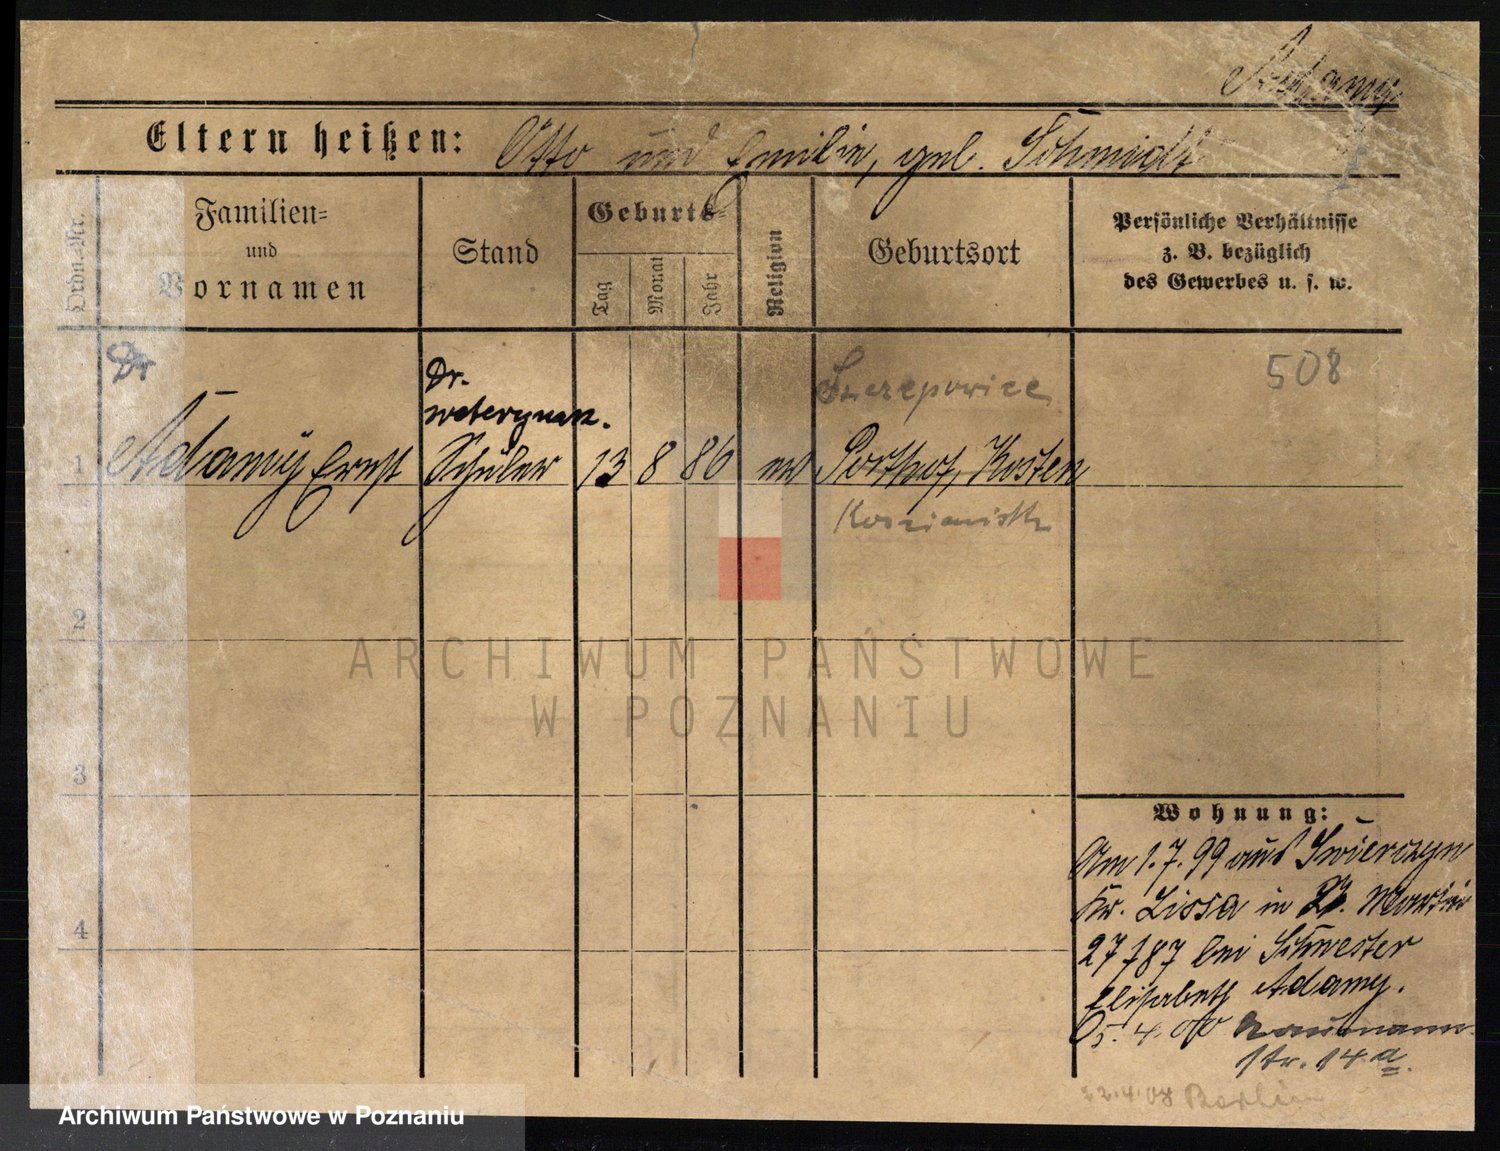 Adamy
Eltern heißen: Otto und Emilie, geb. Schmidt
Ordn.-Nr.
Familien-
und
Vornamen
Stand
Geburts-
Tag
Monat
Jahr
Religion
Geburtsort
Persönliche Verhältnisse
z. B. bezüglich
des Gewerbes u. s. w.
Dr
Dr.
weterynarz.
508
1 Adamy Ernst Schüler 13 8 86 ev Kosten
2
3
4
Wohnung:
Am 1.7.99 aus Swierczyn
Kr. Lissa in St. Martin
27 bei Schwester
Elisabeth Adamy.
5.4.00 Naumann
str. 14 a.
22.4.08 Berlin
ARCHIWUM PAŃSTWOWE
W POZNANIU
Archiwum Państwowe w Poznaniu